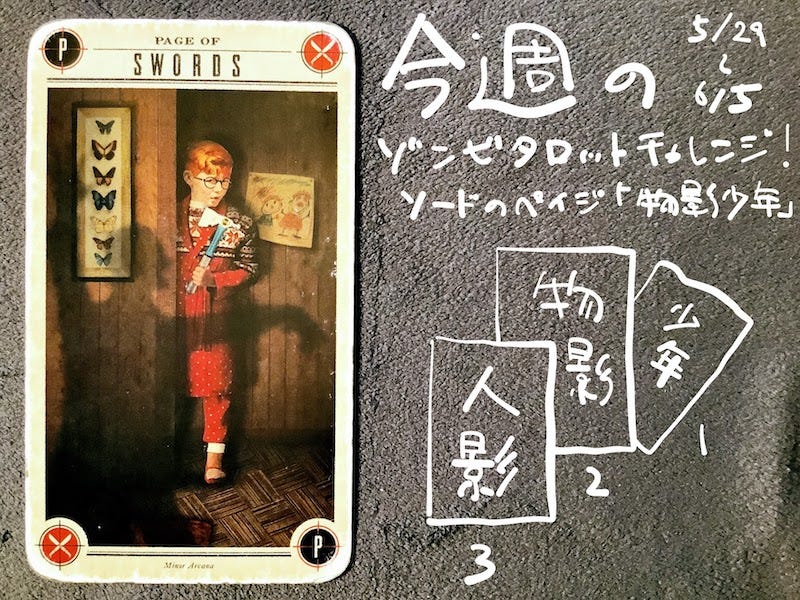 P
PAGE OF
SWORDS
P
Minor Arcana
今週の
5/29
〜
6/5
ゾンゼタロットチャレンジ!
ソードのペイジ「物影少年」
少年
1
物影
2
人影
3